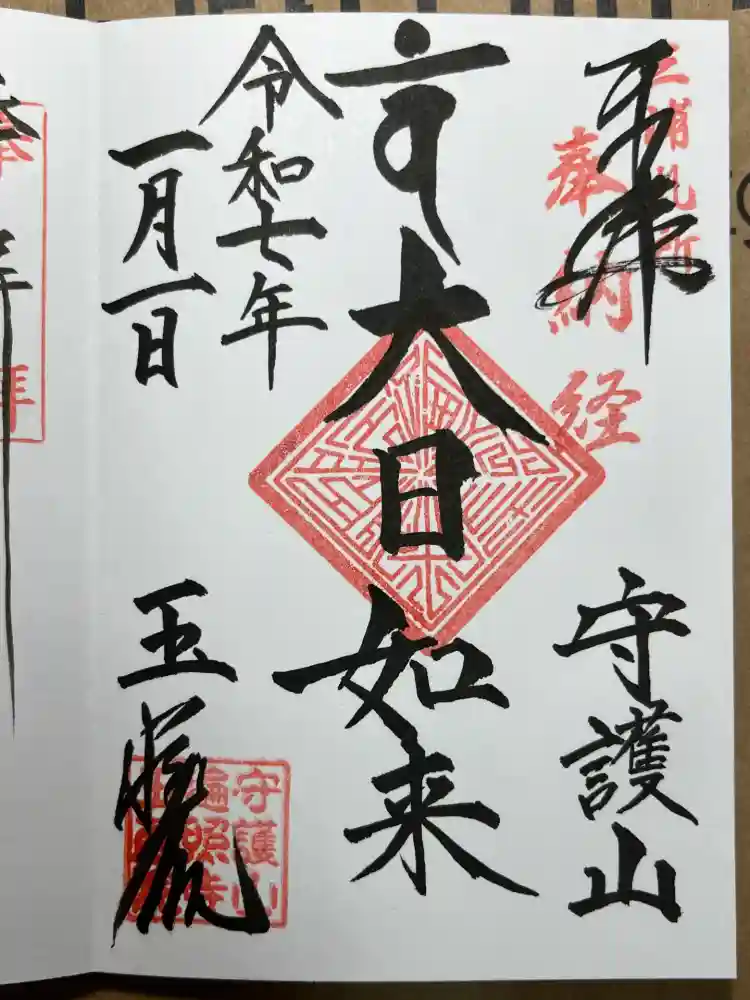 奉拝
三浦札所
奉納経
守護山
大日如来
令和七年
一月一日
玉蔵院
守護山
遍照寺
玉蔵院
奉拝